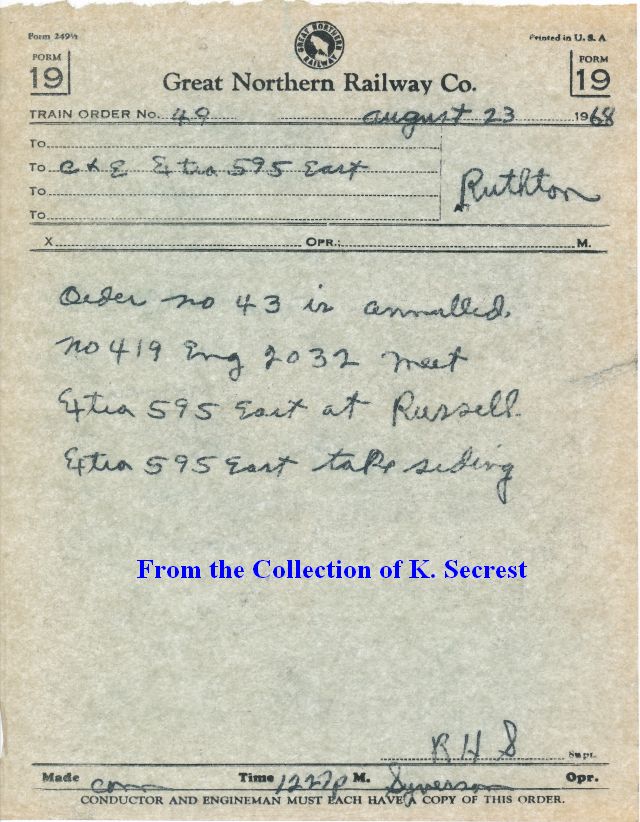 Form 249½
GREAT NORTHERN RAILWAY
Printed in U. S. A
FORM 19
Great Northern Railway Co.
FORM 19
TRAIN ORDER No. 49 august 23 1968
To
To C & E Extra 595 East
To
To
Ruthton
X OPR.: M.
Order no 43 is annulled.
no 419 Eng 2032 meet
Extra 595 East at Russell
Extra 595 East take siding
From the Collection of K. Secrest
R H S Supt.
Made com Time 1227p M. Syverson Opr.
CONDUCTOR AND ENGINEMAN MUST EACH HAVE A COPY OF THIS ORDER.